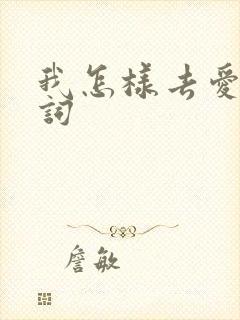 我怎樣去愛
詞
詹敏